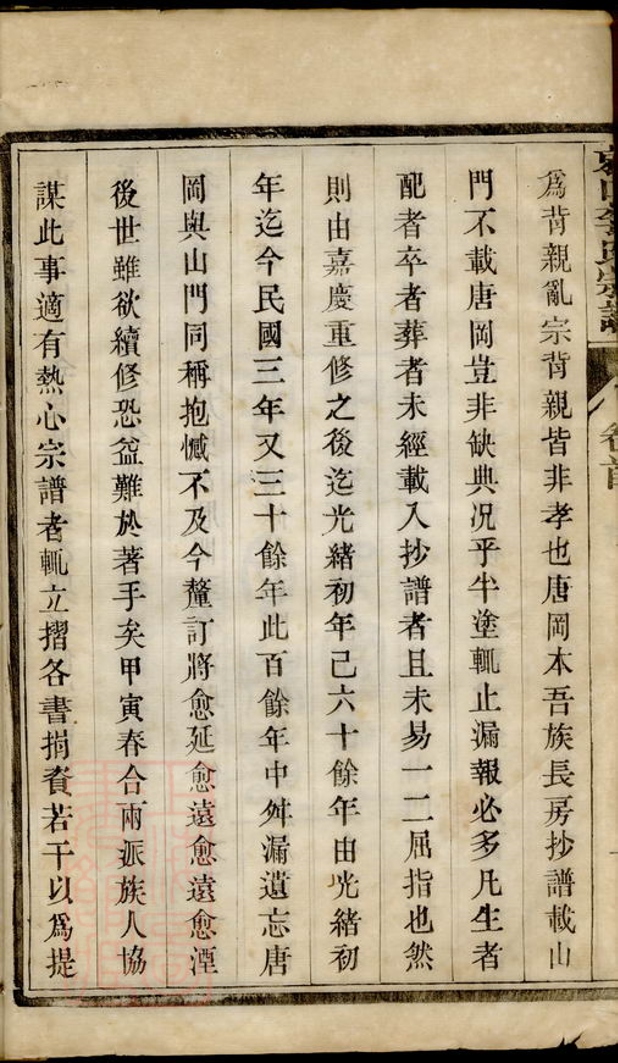 李氏宗譜
卷首
為背親亂宗背親皆非孝也唐岡本吾族長房抄譜載山
門不載唐岡豈非缺典况乎半塗輒止漏報必多凡生者
配者卒者葬者未經載入抄譜者且未易一二屈指也然
則由嘉慶重修之後迄光緒初年己六十餘年由光緒初
年迄今民國三年又三十餘年此百餘年中舛漏遺忘唐
岡與山門同稱抱憾不及今釐訂將愈延愈遠愈遠愈湮
後世雖欲續修恐益難於著手矣甲寅春合兩派族人協
謀此事適有熱心宗譜者輒立摺各書捐資若干以為提